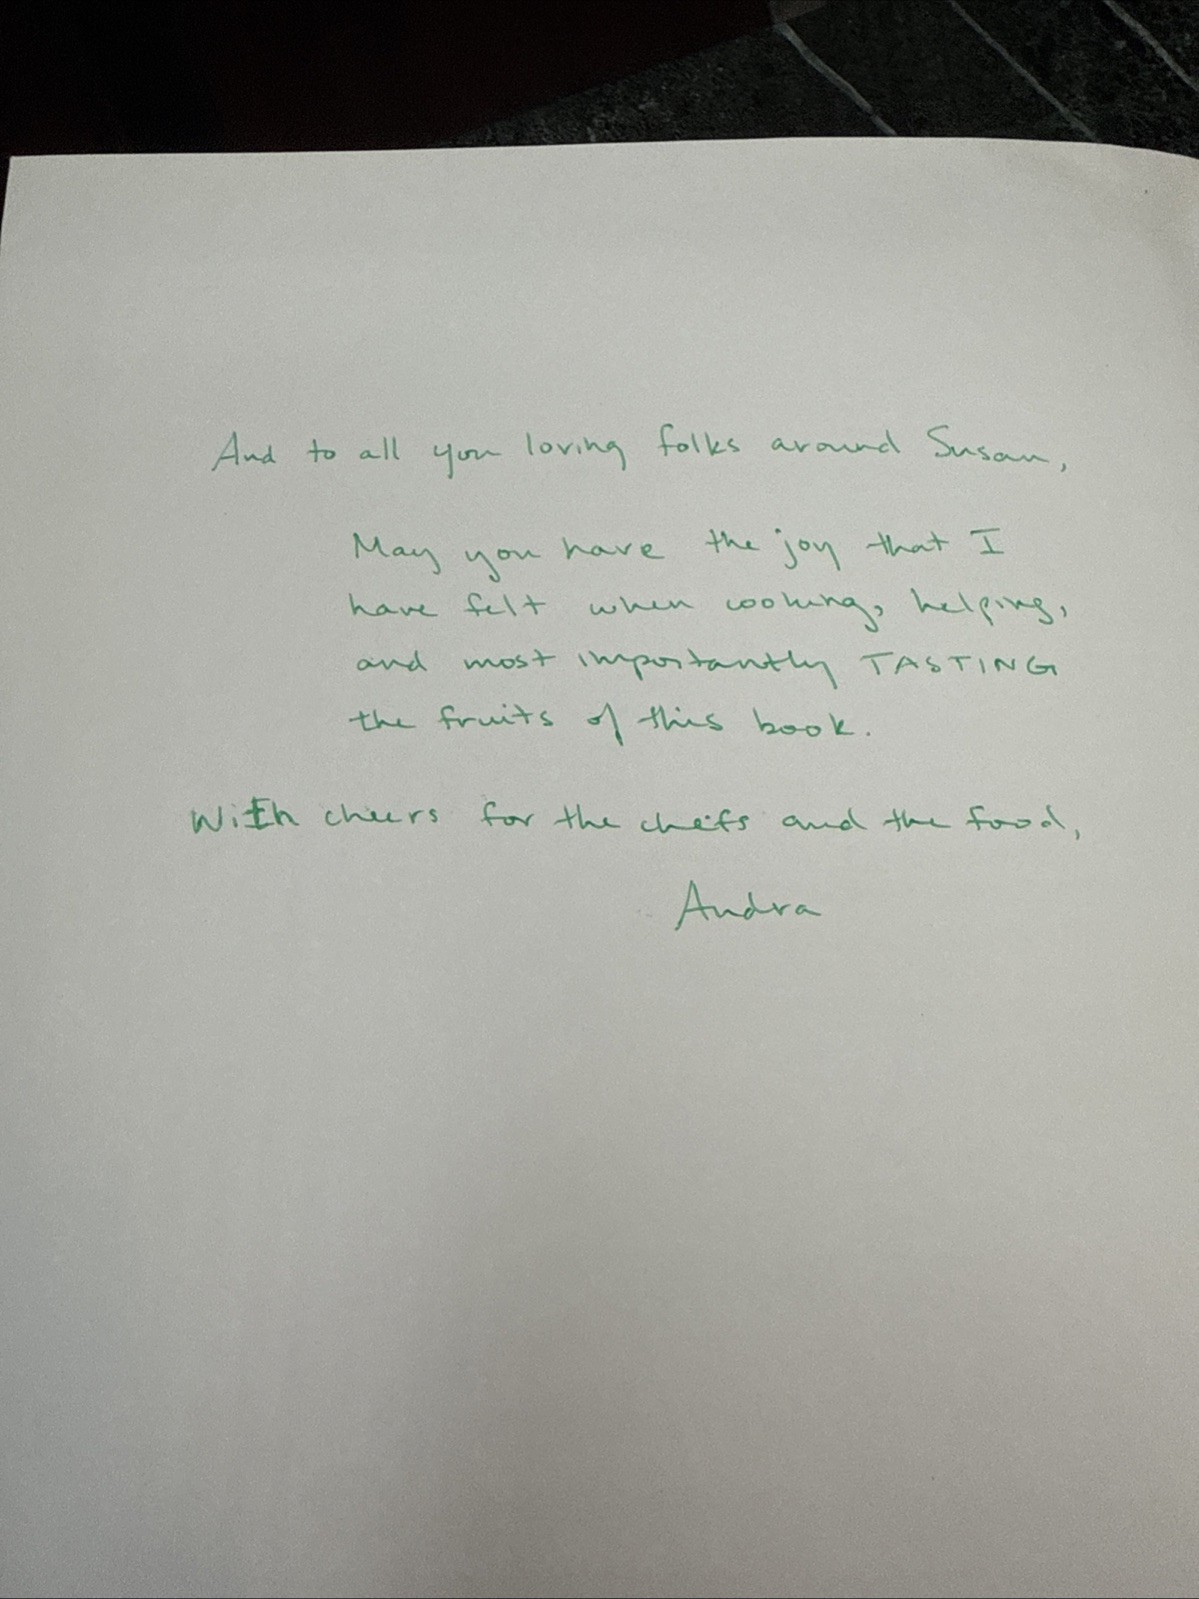 And to all you loving folks around Susan,
May you have the joy that I
have felt when cooking, helping,
and most importantly TASTING
the fruits of this book.
With cheers for the chefs and the food,
Andra